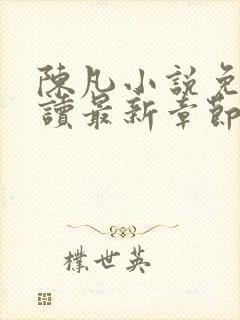 陳凡小說免
讀最新章節
樸世英